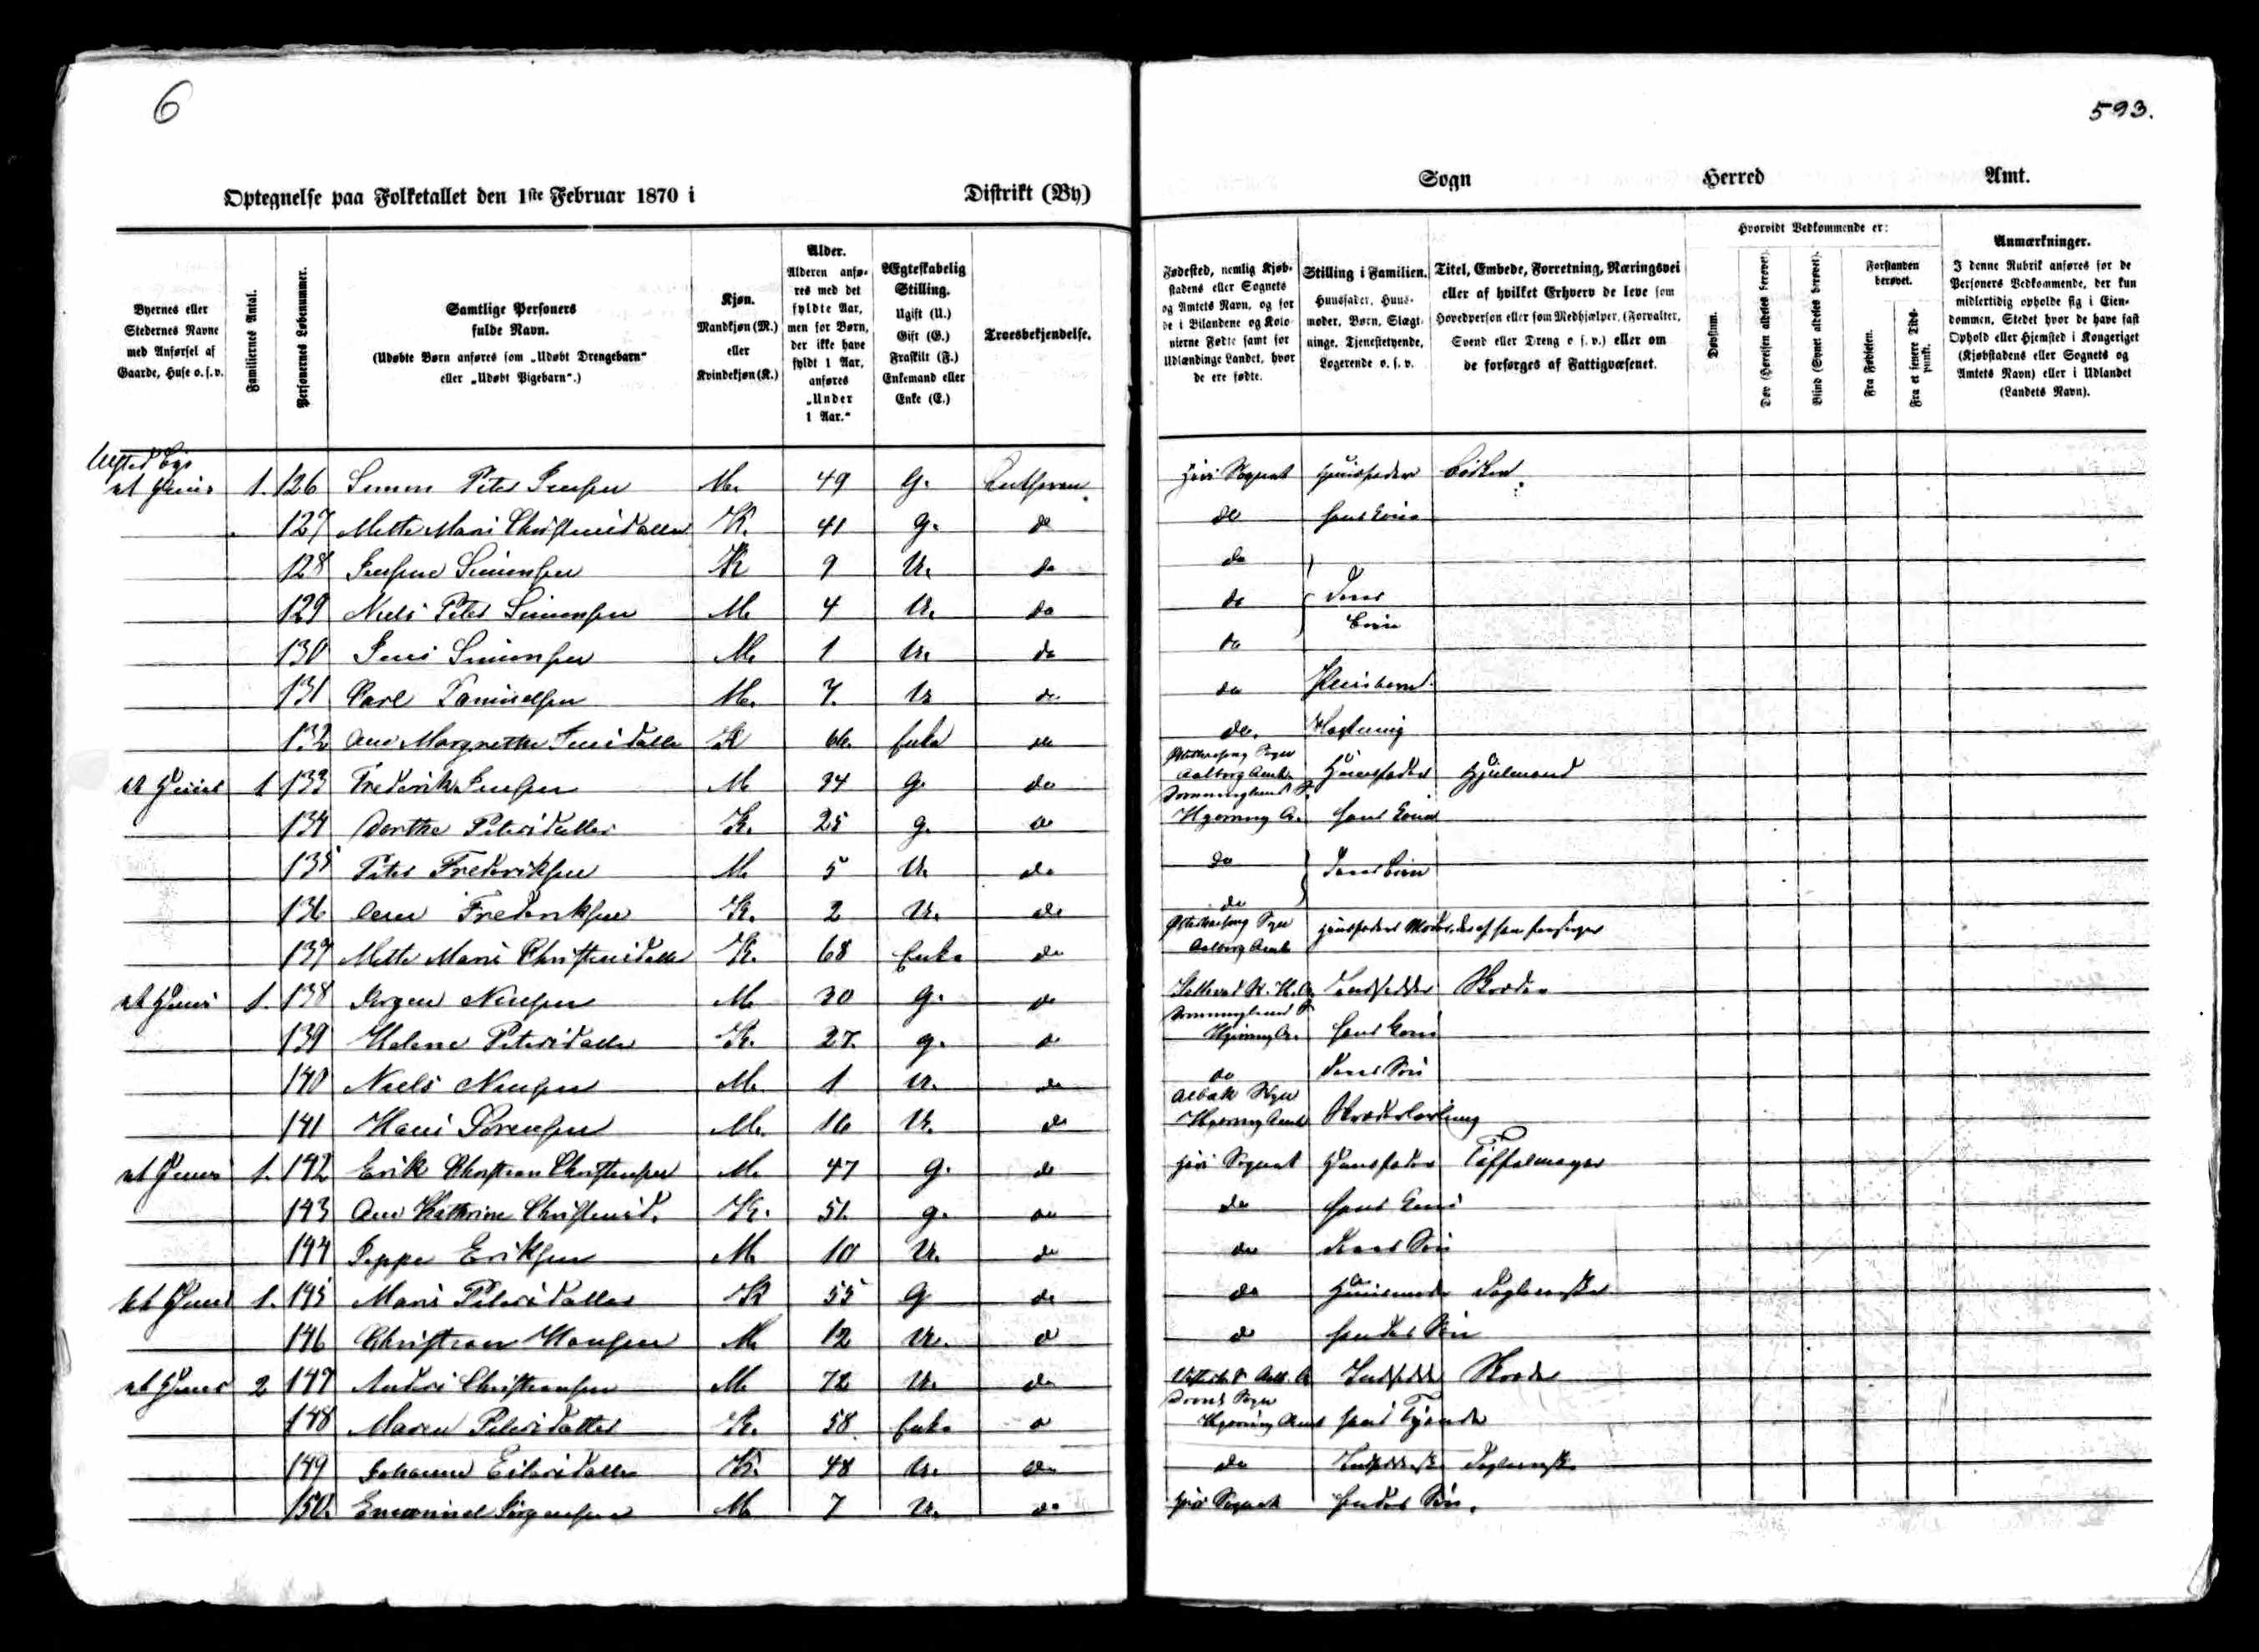 6
593.
Optegnelse paa Folketallet den 1ste Februar 1870 i Distrikt (By) Sogn Herred Amt.
Byernes eller Stedernes Navne med Anførsel af Gaarde, Huse o. s. v.
Familiernes Antal.
Personernes Løbenummer.
Samtlige Personers fulde Navn.
(Udøbte Børn anføres som „Udøbt Drengebarn“ eller „Udøbt Pigebarn“.)
Kjøn.
Mandkjøn (M.) eller Kvindekjøn (K.)
Alder.
Alderen anføres med det fyldte Aar, men for Børn, der ikke have fyldt 1 Aar, anføres „Under 1 Aar.“
Ægteskabelig Stilling.
Ugift (U.) Gift (G.) Fraskilt (F.) Enkemand eller Enke (E.)
Troesbekjendelse.
Fødested, nemlig Kjøbstadens eller Sognets og Amtets Navn, og for de i Bilandene og Kolonierne Fødte samt for Udlændinge Landet, hvor de ere fødte.
Stilling i Familien.
Huusfader, Huusmoder, Børn, Slægtninge, Tjenestetyende, Logerende o. s. v.
Titel, Embede, Forretning, Næringsvei eller af hvilket Erhverv de leve som Hovedperson eller som Medhjælper, (Forvalter, Svend eller Dreng o s. v.) eller om de forsørges af Fattigvæsenet.
Hvorvidt Vedkommende er:
Døvstum.
Døv (Hørelsen aldeles berøvet).
Blind (Synet aldeles berøvet).
Forstanden berøvet.
Fra Fødselen.
Fra et senere Tidspunkt.
Anmærkninger.
I denne Rubrik anføres for de Personers Vedkommende, der kun midlertidig opholde sig i Eiendommen, Stedet hvor de have fast Ophold eller Hjemsted i Kongeriget (Kjøbstadens eller Sognets og Amtets Navn) eller i Udlandet (Landets Navn).
et Huus 1. 126 Simon Peter Jensen M. 49 G. Lutheran her i Sognet Huusfader Bødker
127 Mette Marie Christensdatter K. 41 G. do do hans Kone
128 Jensine Simonsen K 9 U. do do
129 Niels Peter Simonsen M. 4 U. do do deres
130 Jens Simonsen M. 1 U. do do Børn
131 Carl Samuelsen M. 7. U do do Pleiebarn
132 Ane Margrethe Jensdatter K 66. Enke do do
et Huus 1 133 Frederik Jensen M 34 G. do Aalborg Amt Huusfader Hjulmand
134 Dorthe Petersdatter K. 25 G. do Dronninglund S. Hjørring A. hans Kone
135 Peter Frederiksen M. 5 U. do do deres Børn
136 Ane Frederiksen K. 2 U. do do
137 Mette Marie Christensdatter K. 68 Enke do Aalborg Amt Huusfaders Moder
et Huus 1. 138 Jørgen Nielsen M. 30 G. do Indsidder Skræder
139 Helene Petersdatter K. 27. G. do Dronninglund S. Hjørring A. hans Kone
140 Niels Nielsen M. 1 U. do do deres Søn
141 Hans Sørensen M. 16 U. do Albæk Sogn Hjørring Amt Skræderlærling
et Huus 1. 142 Erik Christian Christensen M. 47 G. do her i Sognet Huusfader Tøffelmager
143 Ane Kathrine Christensd. K. 51. G. do do hans Kone
144 Jeppe Eriksen M. 10 U. do do deres Søn
et Huus 1. 145 Maria Petersdatter K 55 G do do Huusmoder Daglønner
146 Christian Hansen M. 12 U. do do hendes Søn
et Huus 2 147 Anders Christensen M 72 U. do Indsidder Skræder
148 Maren Petersdatter K. 58. Enke do Hjørring Amt hans Tyende
149 Johanne Eilersdatter K. 48 U. do do
150. Emanuel Jørgensen M. 7 U. do her i Sognet hendes Søn.